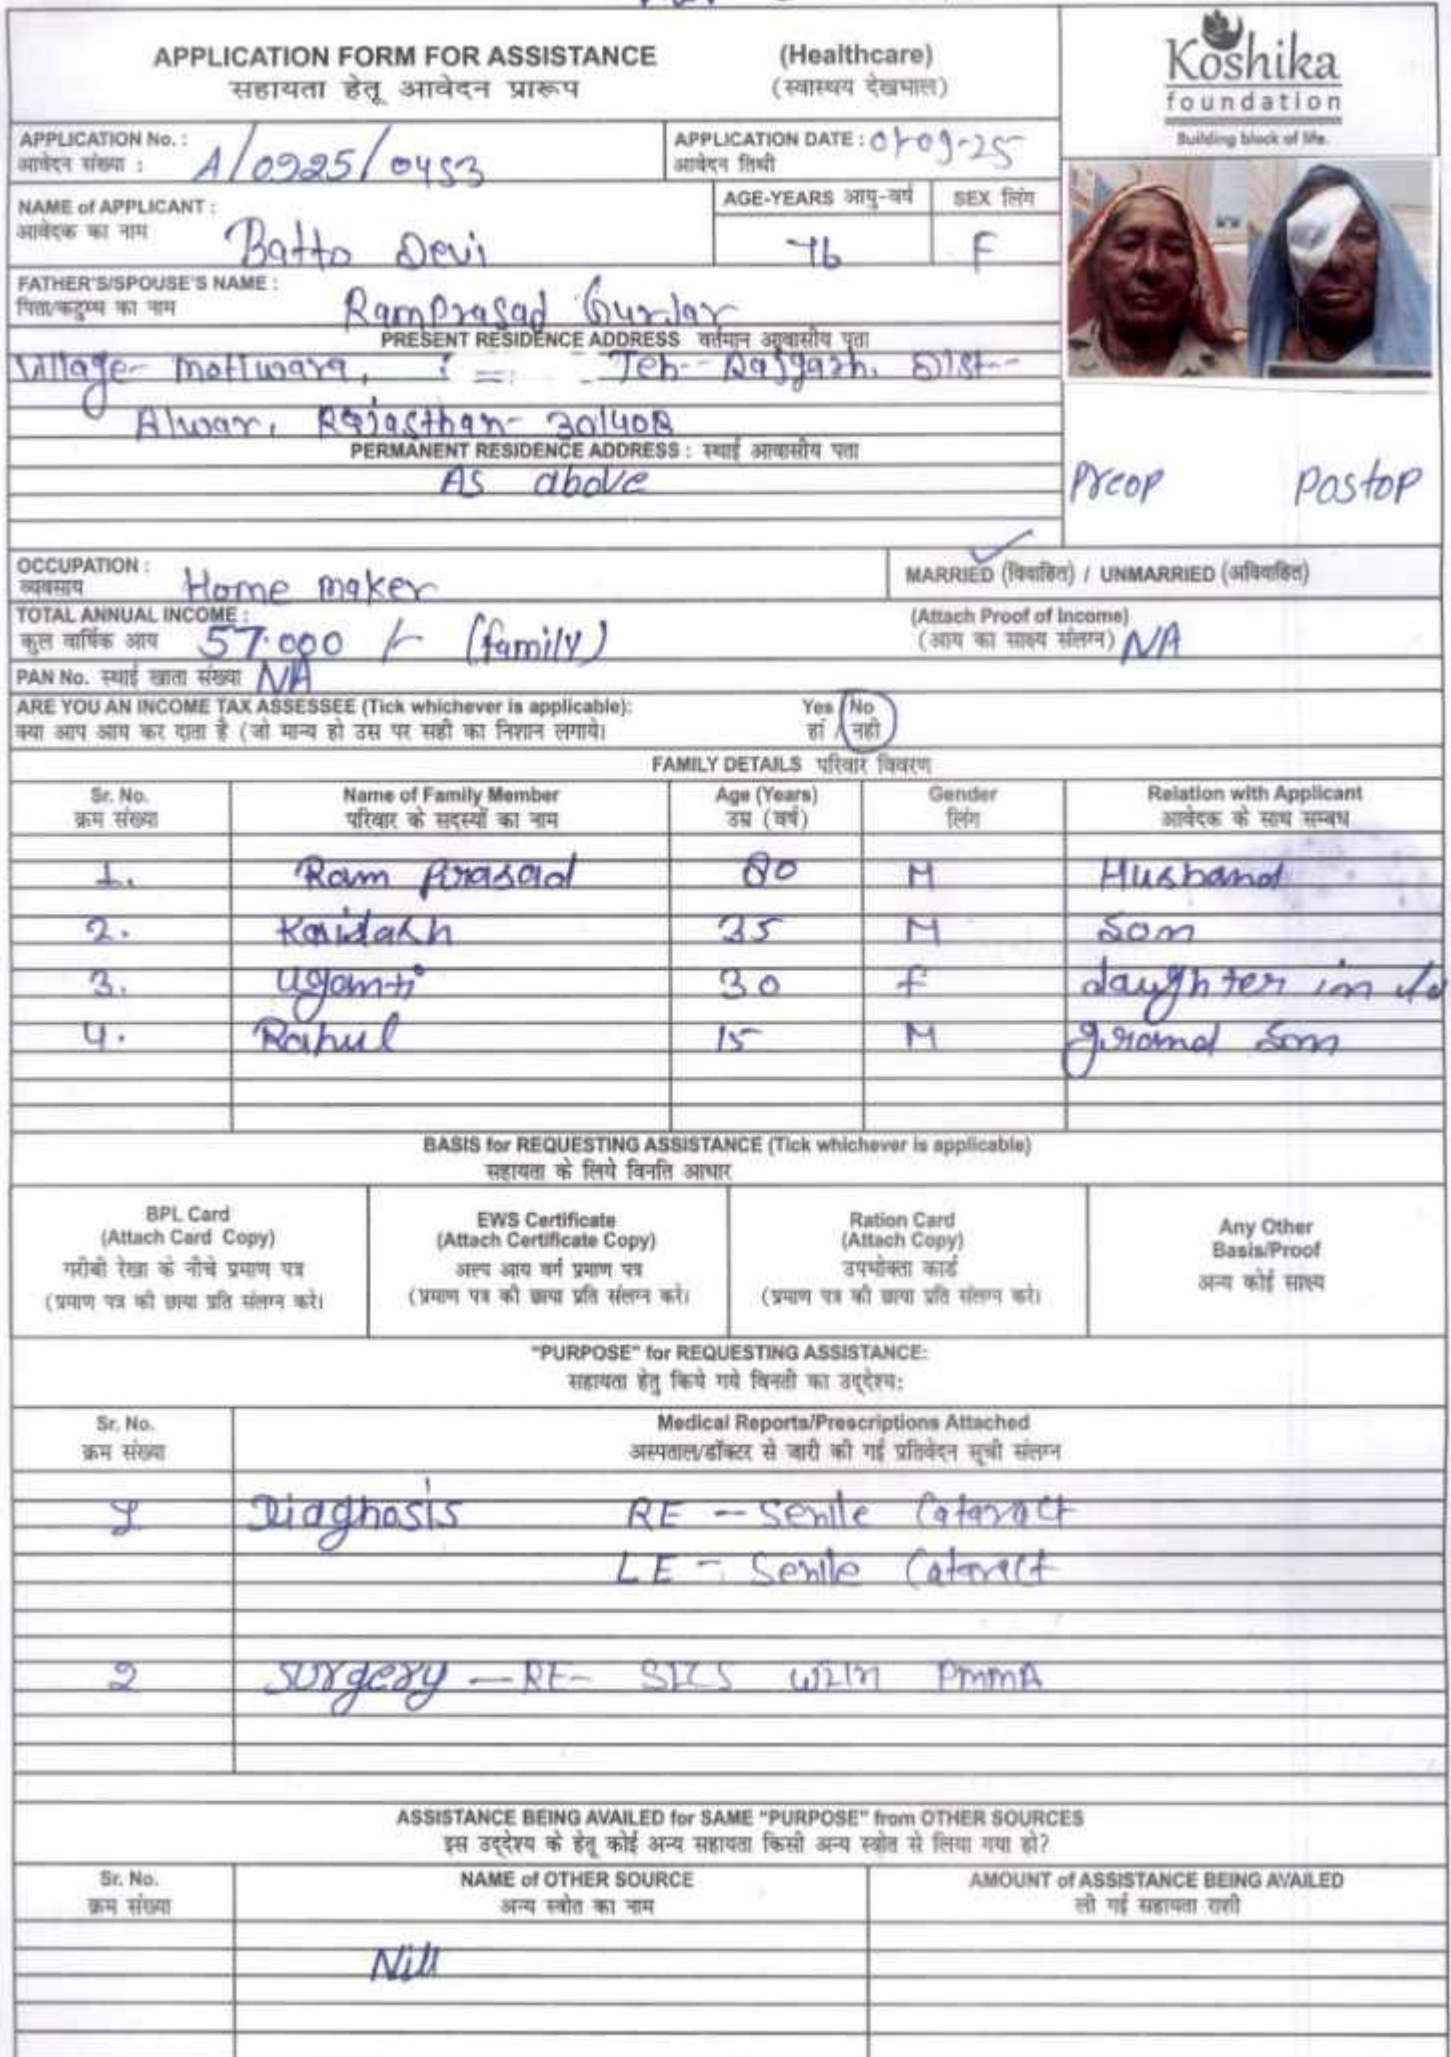 APPLICATION FORM FOR ASSISTANCE (Healthcare)
सहायता हेतू आवेदन प्रारूप (स्वास्थय देखभाल)
Koshika
foundation
Building block of life.
APPLICATION No. : A/0925/0453
आवेदन संख्या :
APPLICATION DATE : 01-09-25
आवेदन तिथी
NAME of APPLICANT : Batto Devi
आवेदक का नाम
AGE-YEARS आयु-वर्ष 76
SEX लिंग F
FATHER'S/SPOUSE'S NAME : RamPrasad Gurjar
पिता/कटुम्ब का नाम
PRESENT RESIDENCE ADDRESS वर्तमान आवासीय पता
Village- Teh- Rajgarh, Dist-
Alwar, Rajasthan- 301408
PERMANENT RESIDENCE ADDRESS : स्थाई आवासीय पता
As above
Preop Postop
OCCUPATION : Home maker
व्यवसाय
MARRIED (विवाहित) / UNMARRIED (अविवाहित)
TOTAL ANNUAL INCOME : 57.000 /- (family)
कुल वार्षिक आय
(Attach Proof of Income)
(आय का साक्ष्य संलग्न) NA
PAN No. स्थाई खाता संख्या NA
ARE YOU AN INCOME TAX ASSESSEE (Tick whichever is applicable): Yes / No
क्या आप आय कर दाता है (जो मान्य हो उस पर सही का निशान लगाये। हां / नही
FAMILY DETAILS परिवार विवरण
Sr. No. Name of Family Member Age (Years) Gender Relation with Applicant
क्रम संख्या परिवार के सदस्यों का नाम उम्र (वर्ष) लिंग आवेदक के साथ सम्बध
1. Ram Prasad 80 M Husband
2. 35 M Son
3. Uganti 30 f daughter in
4. Rahul 15 M grand son
BASIS for REQUESTING ASSISTANCE (Tick whichever is applicable)
सहायता के लिये विनति आधार
BPL Card
(Attach Card Copy)
गरीबी रेखा के नीचे प्रमाण पत्र
(प्रमाण पत्र की छाया प्रति संलग्न करे।
EWS Certificate
(Attach Certificate Copy)
अल्प आय वर्ग प्रमाण पत्र
(प्रमाण पत्र की छाया प्रति संलग्न करे।
Ration Card
(Attach Copy)
उपभोक्ता कार्ड
(प्रमाण पत्र की छाया प्रति संलग्न करे।
Any Other
Basis/Proof
अन्य कोई साक्ष्य
"PURPOSE" for REQUESTING ASSISTANCE:
सहायता हेतु किये गये विनती का उद्देश्य:
Sr. No. Medical Reports/Prescriptions Attached
क्रम संख्या अस्पताल/डॉक्टर से जारी की गई प्रतिवेदन सूची संलग्न
1 Diagnosis RE - Senile Cataract
LE - Senile Cataract
2 Surgery - RE- SICS with PMMA
ASSISTANCE BEING AVAILED for SAME "PURPOSE" from OTHER SOURCES
इस उद्देश्य के हेतू कोई अन्य सहायता किसी अन्य स्त्रोत से लिया गया हो?
Sr. No. NAME of OTHER SOURCE AMOUNT of ASSISTANCE BEING AVAILED
क्रम संख्या अन्य स्त्रोत का नाम ली गई सहायता राशी
Nill